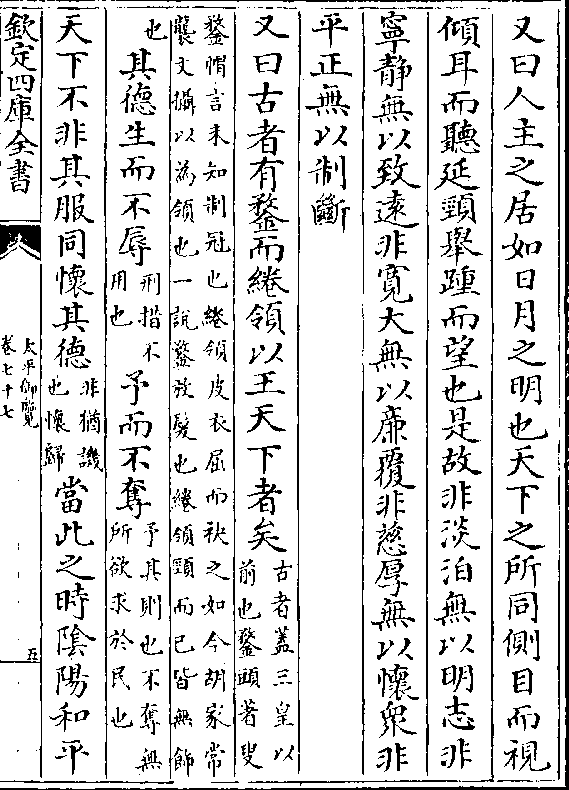 又曰人主之居如日月之明也天下之所同側目而視
傾耳而聽延頸舉踵而望也是故非淡泊無以明志非
寧静無以致遠非寛大無以廉覆非慈厚無以懷衆非
平正無以制斷
又曰古者有鍪而綣領以王天下者矣古者葢三皇以
前也鍪頭著兠
鍪帽言未知制冠也綣領皮衣屈而袂之如今胡家常
襲文攝以為領也一說鍪放髮也綣領頸而已皆無飾
也其德生而不辱刑措不
用也予而不奪予其則也不奪無
所欲求於民也
天下不非其服同懷其德非猶譏
也懷歸當此之時隂陽和平
欽定四庫全書
太平御覽
卷七十七
五